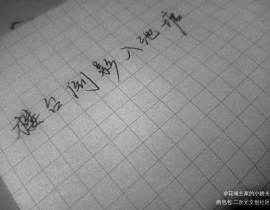 楼台倒影入池塘
@花城主家的小娇夫
画包包·二次元文创社区